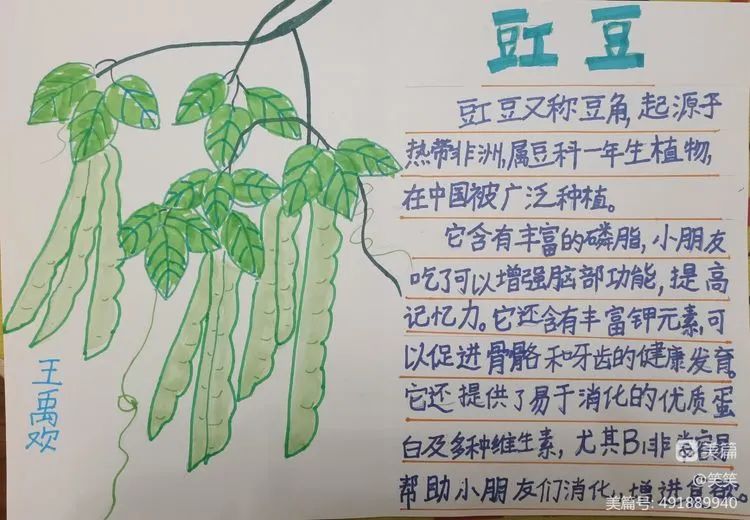 豇豆
豇豆又称豆角,起源于
热带非洲,属豆科一年生植物,
在中国被广泛种植。
它含有丰富的磷脂,小朋友
吃了可以增强脑部功能,提高
记忆力。它还含有丰富钾元素,可
以促进骨骼和牙齿的健康发育。
它还提供了易于消化的优质蛋
白及多种维生素,尤其B1非
帮助小朋友们消化,增进食欲。
王禹欢
美篇
@笑笑
美篇号:491889940